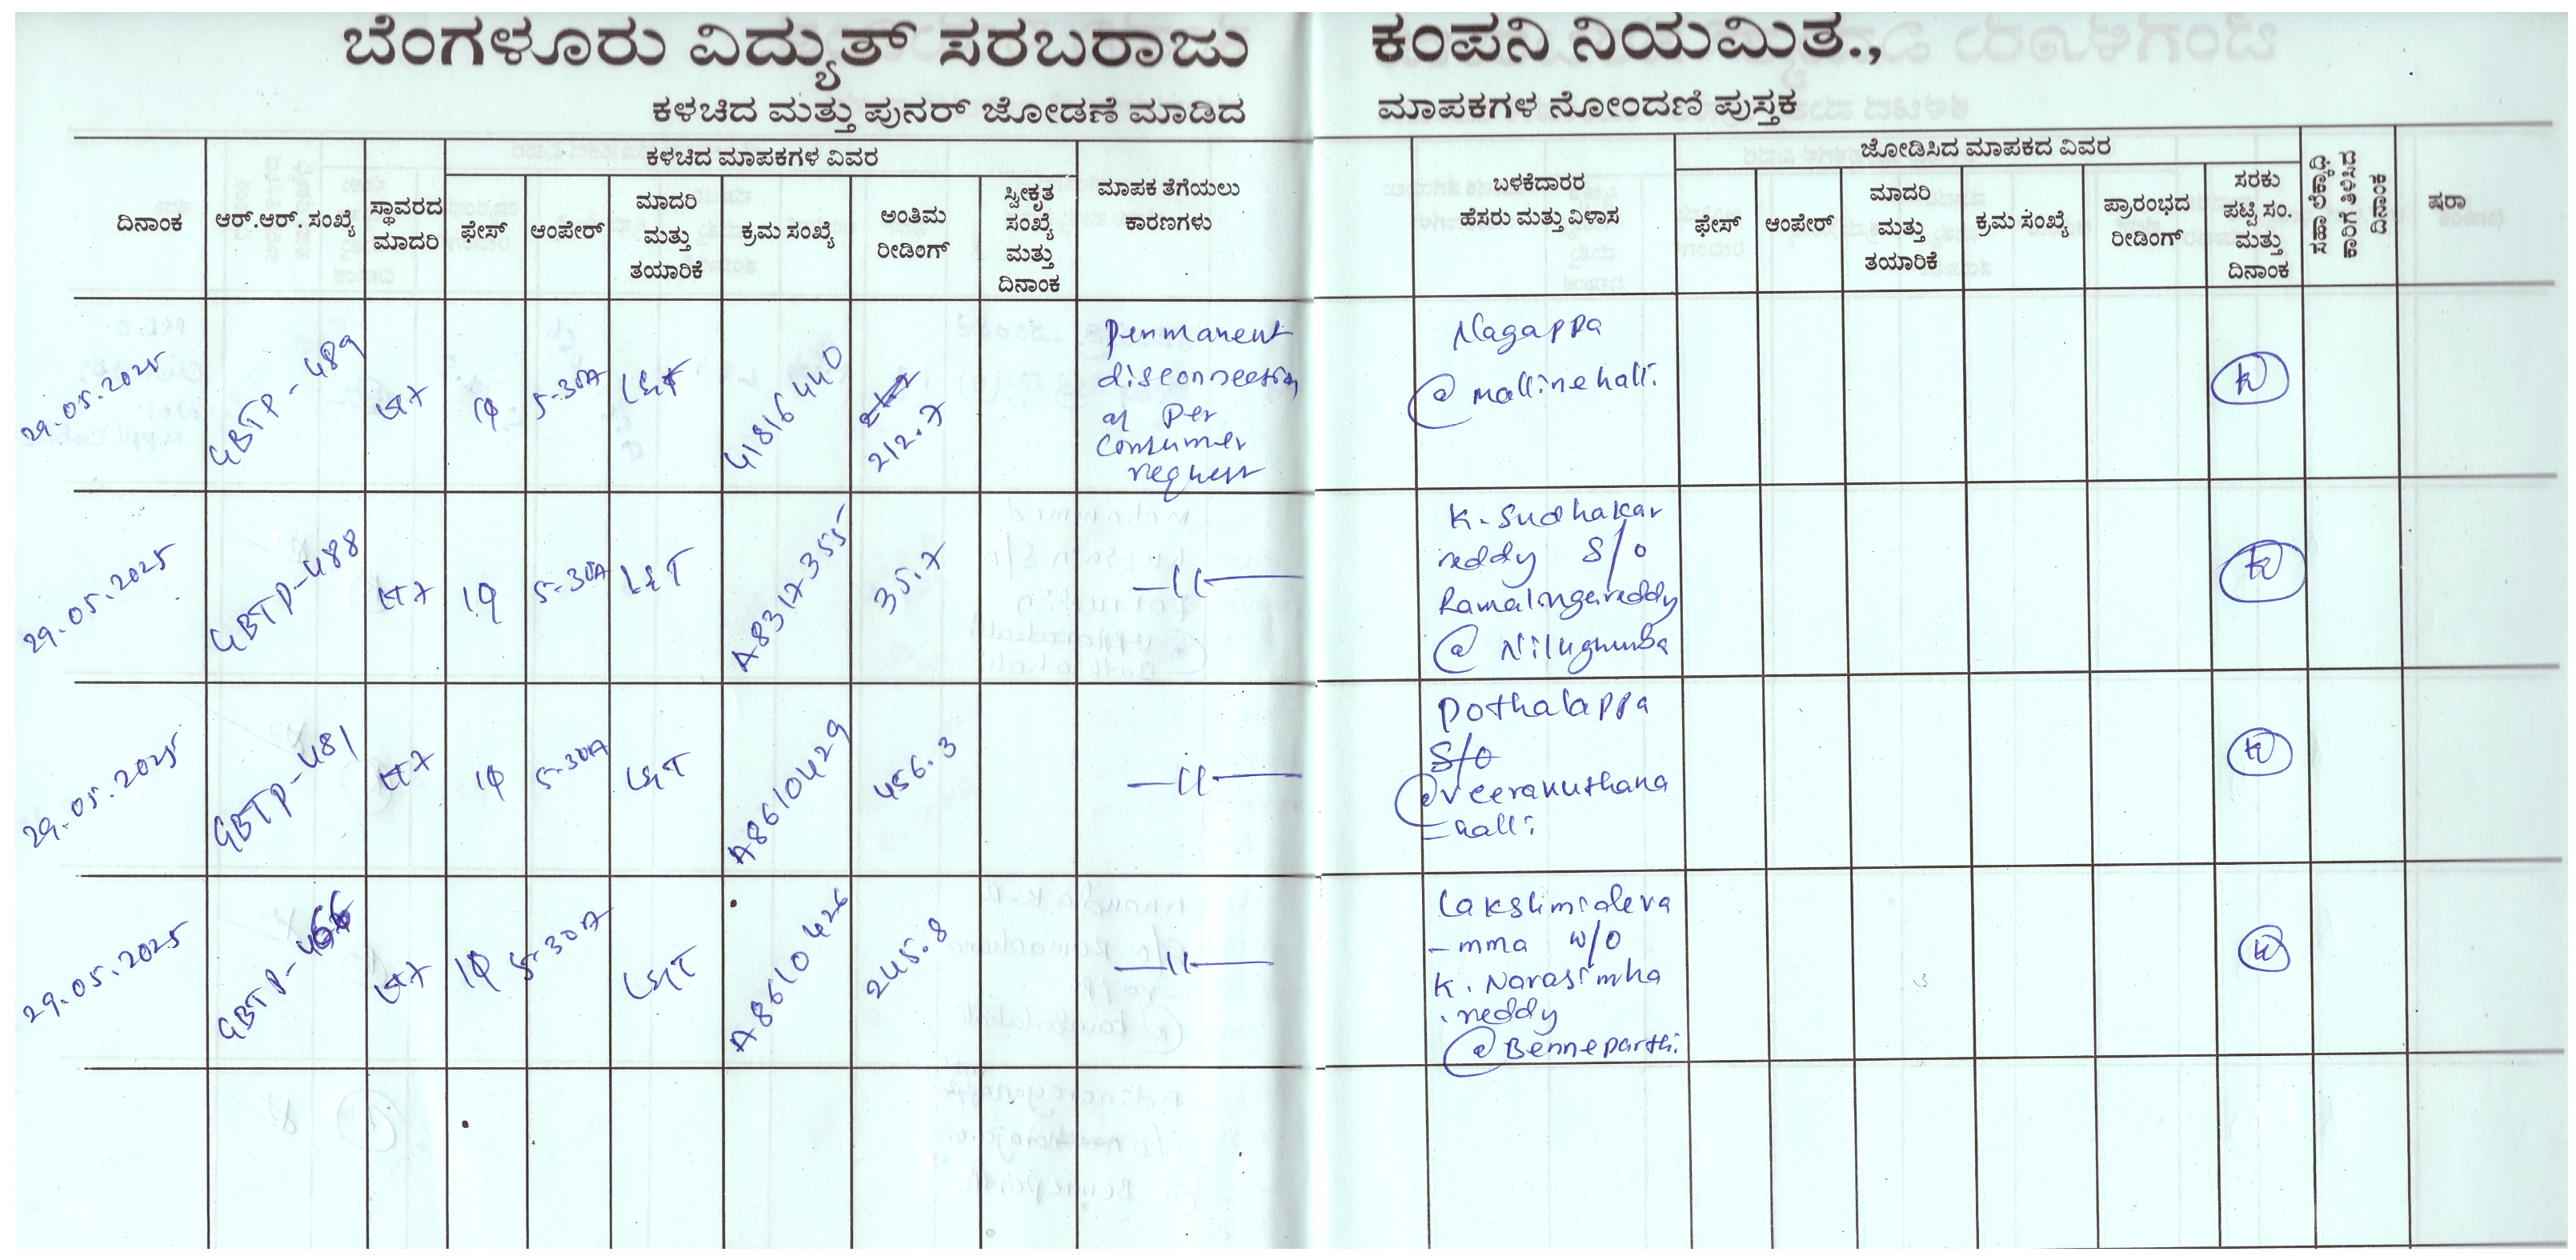 ಬೆಂಗಳೂರು ವಿದ್ಯುತ್ ಸರಬರಾಜು ಕಂಪನಿ ನಿಯಮಿತ.,
ಕಳಚಿದ ಮತ್ತು ಪುನರ್ ಜೋಡಣೆ ಮಾಡಿದ ಮಾಪಕಗಳ ನೋಂದಣಿ ಪುಸ್ತಕ
ದಿನಾಂಕ
ಆರ್.ಆರ್. ಸಂಖ್ಯೆ
ಸ್ಥಾವರದ
ಮಾದರಿ
ಕಳಚಿದ ಮಾಪಕಗಳ ವಿವರ
ಫೇಸ್
ಆಂಪೇರ್
ಮಾದರಿ
ಮತ್ತು
ತಯಾರಿಕೆ
ಕ್ರಮ ಸಂಖ್ಯೆ
ಅಂತಿಮ
ರೀಡಿಂಗ್
ಸ್ವೀಕೃತ
ಸಂಖ್ಯೆ
ಮತ್ತು
ದಿನಾಂಕ
ಮಾಪಕ ತೆಗೆಯಲು
ಕಾರಣಗಳು
ಬಳಕೆದಾರರ
ಹೆಸರು ಮತ್ತು ವಿಳಾಸ
ಜೋಡಿಸಿದ ಮಾಪಕದ ವಿವರ
ಫೇಸ್
ಆಂಪೇರ್
ಮಾದರಿ
ಮತ್ತು
ತಯಾರಿಕೆ
ಕ್ರಮ ಸಂಖ್ಯೆ
ಪ್ರಾರಂಭದ
ರೀಡಿಂಗ್
ಸರಕು
ಪಟ್ಟಿ ಸಂ.
ಮತ್ತು
ದಿನಾಂಕ
ಸಹಾ ಲೆಕ್ಕಾಧಿ
ಕಾರಿಗೆ ತಿಳಿಸಿದ
ದಿನಾಂಕ
ಷರಾ
29.05.2025
GBTP-489
LT7
1φ
5-30A
L&T
41816440
212.7
Permanent
disconnection
as per
consumer
request
Nagappa
@ mallinehalli
29.05.2025
GBTP-488
LT7
1φ
5-30A
L&T
A8317355
35.7
—11—
K. Sudhakar
reddy S/o
Ramalingareddy
@ Nilugumba
29.05.2025
GBTP-481
LT7
1φ
5-30A
L&T
A8610429
456.3
—11—
Pothalappa
S/o
@veeranuthana
-halli
29.05.2025
GBTP-466
LT7
1φ
5-30A
L&T
A8610426
245.8
—11—
Lakshmideva
-mma w/o
K. Narasimha
reddy
@Benneparthi